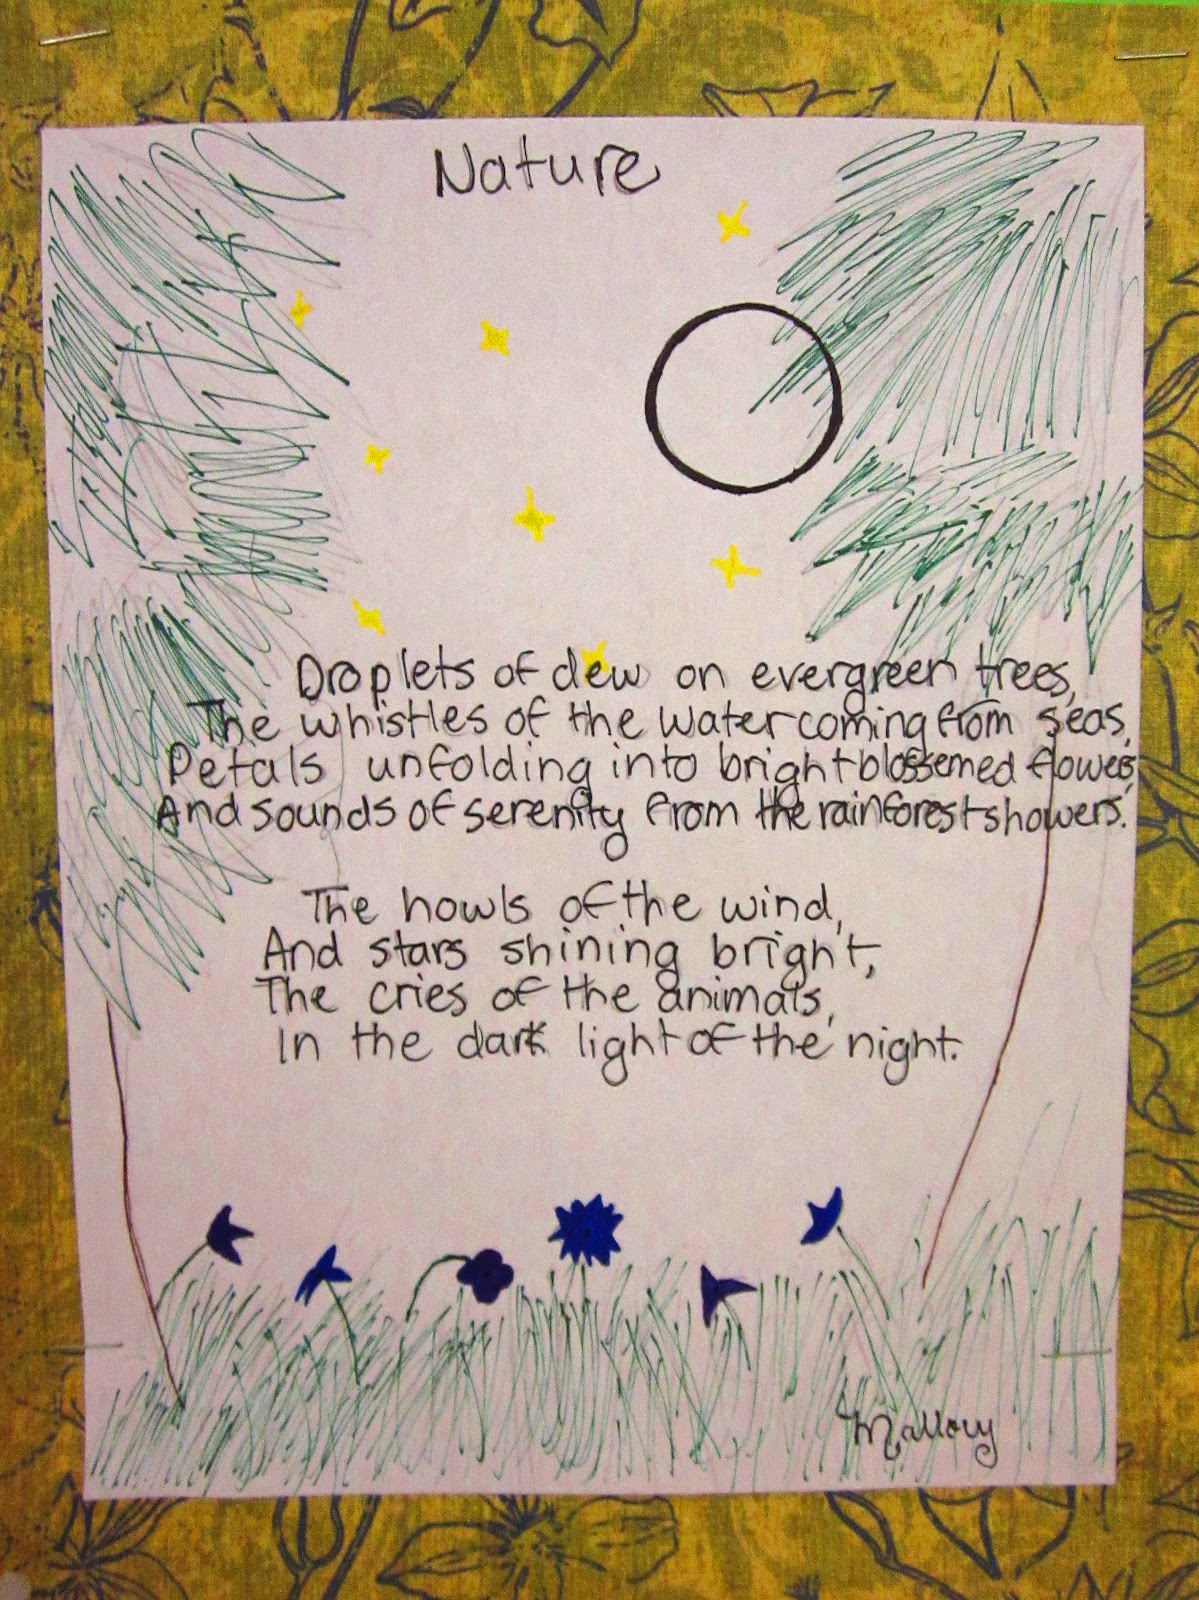 Nature
Droplets of dew on evergreen trees,
The whistles of the water coming from seas,
Petals unfolding into bright blossemed flowers,
And sounds of serenity from the rainforest showers.
The howls of the wind,
And stars shining bright,
The cries of the animals,
In the dark light of the night.
Mallory